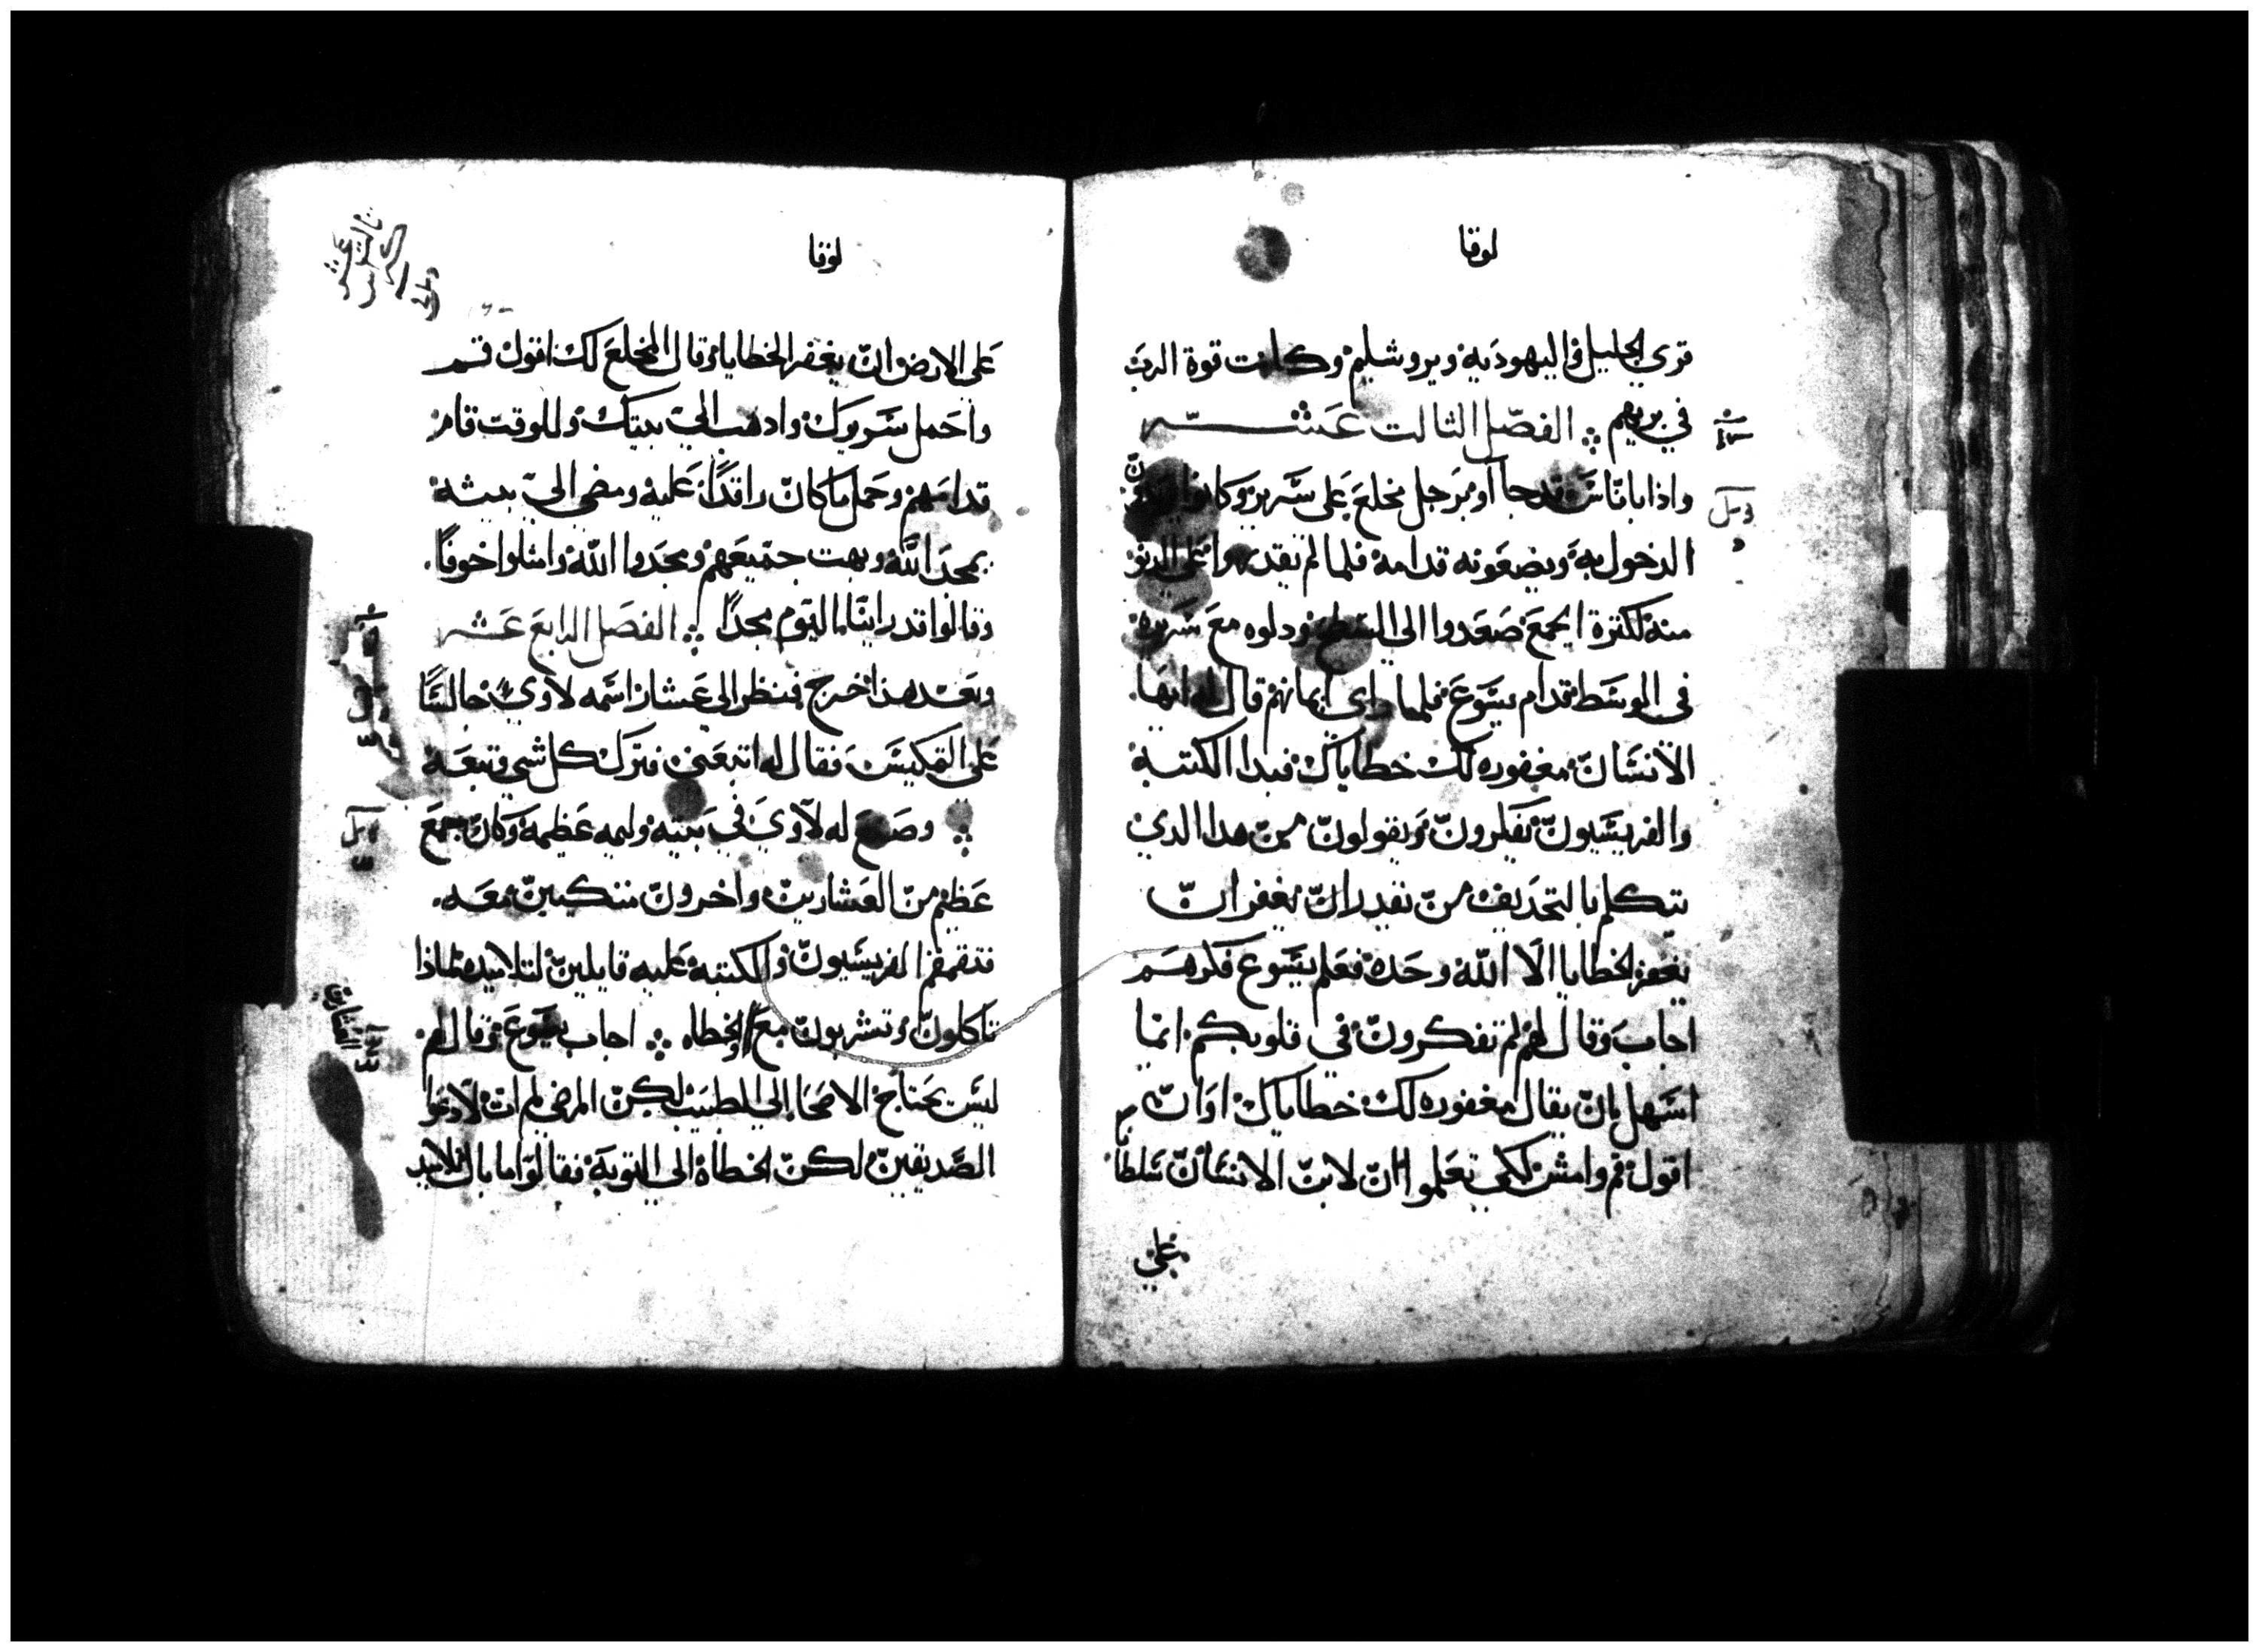 لوقا
قري الجليل واليهوديه ويروشليم وكانت قوة الرب
في بريهم ⁘ الفصل التالت عشر
واذا باناس قد جاأو برجل مخلع على سرير وكانوا
الدخول به ويضعونه قدامه فلما لم يقدروا على الدنو
منه لكترة الجمع صعدوا الى السطح ودلوه مع سريره
في الوسط قدام يسوع فلما راي ايمانهم قال له ايها
الانسان مغفوره لك خطاياك فبدا الكتبة
والفريسيون يفكرون ويقولون من هدا الدي
يتكلم بالتجديف من يقدر ان يغفر ان
يغفر الخطايا الا الله وحده فعلم يسوع فكرهم
اجاب وقال لهم لم تفكرون في قلوبكم انما
اسهل ان يقال مغفوره لك خطاياك او ان
اقول قم وامش لكي تعلموا ان لابن الانسان سلطا
على
لوقا
على الارض ان يغفر الخطايا وقال المخلع لك اقول قم
واحمل سريرك وادهب الي بيتك وللوقت قام
قدامهم وحمل ما كان راقدًا عليه ومضي الي بيته
بمجد الله وبهت جميعهم ومجدوا الله وامتلوا خوفًا.
وقالوا قد راينا اليوم مجدًا ⁘ الفصل الرابع عشر
وبعد هذا خرج فنظر الى عشار اسمه لاوي جالسًا
على المكيس فقال له اتبعني فترك كل شي وتبعه
⁘ وصنع له لاوي في بيته وليمه عظيمة وكان جمع
عظيم من العشارين واخرون متكيين معه.
فتقمقم الفريسيون والكتبة عليه قايلين لتلاميده لمادا
تاكلون وتشربون مع والخطاه ⁘ اجاب يسوع وقال لهم
ليس يحتاج الاصحا الي الطبيب لكن المرضي لم ات لادعوا
الصديقين لكن الخطاة الي التوبة فقالوا ما بال تلاميد